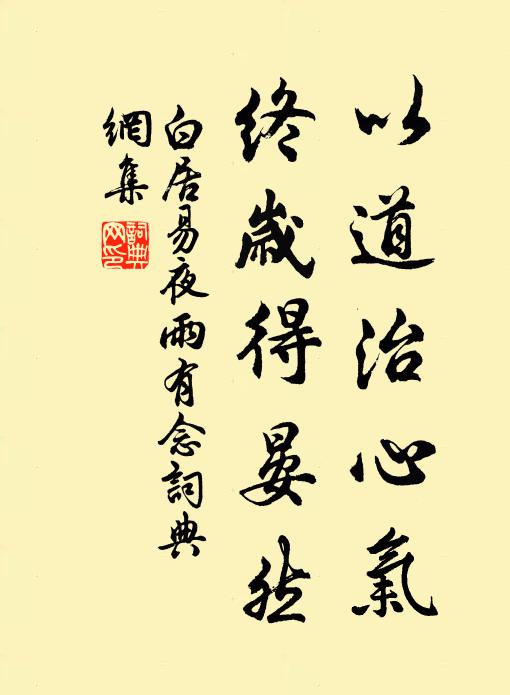 以道治心氣
終歲得晏然
白居易夜雨有念詞典
網集
詞典網印